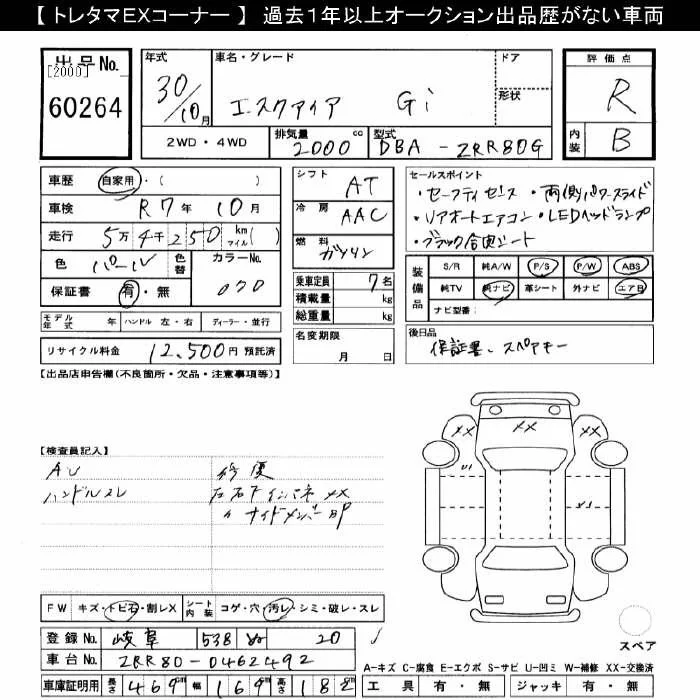 【 トレタマEXコーナー 】 過去1年以上オークション出品歴がない車両
出品No. [2000] 60264
年式 30/10月
車名・グレード エスクァイア Gi
ドア
形状
評価点 R
内装 B
2WD・4WD 排気量 2000 cc 型式 DBA-ZRR80G
車歴 自家用・( )
車検 R7年10月
走行 5万4千250 km マイル( )
色 パール 色替 カラーNo. 070
保証書 有・無
シフト AT
冷房 AAC
燃料 ガソリン
乗車定員 7名
積載量 kg
総重量 kg
セールスポイント
・セーフティセンス ・両側パワースライド
・リアオートエアコン ・LEDヘッドランプ
・ブラック合皮シート
装備品 S/R 純A/W P/S P/W ABS
純TV 純ナビ 革シート 外ナビ エアB
ナビ型番:
モデル年式 年 ハンドル 左・右 ディーラー・並行
名変期限 月 日
後日品 保証書、スペアキー
リサイクル料金 12,500円 預託済
【出品店申告欄(不良箇所・欠品・注意事項等)】
【検査員記入】
ハンドルスレ
修復
左右下インパネ XX
〃 サイドメンバー BP
XX XX XX
FW キズ・トビ石・割レX シート内装 コゲ・穴・汚レ・シミ・破レ・スレ
登録No. 岐阜 538 ぬ 20
車台No. ZRR80-0462492
車庫証明用 長さ 469cm 幅 169cm 高さ 182cm
スペア
A-キズ C-腐食 E-エクボ S-サビ U-凹ミ W-補修 XX-交換済
工具 有・無 ジャッキ 有・無